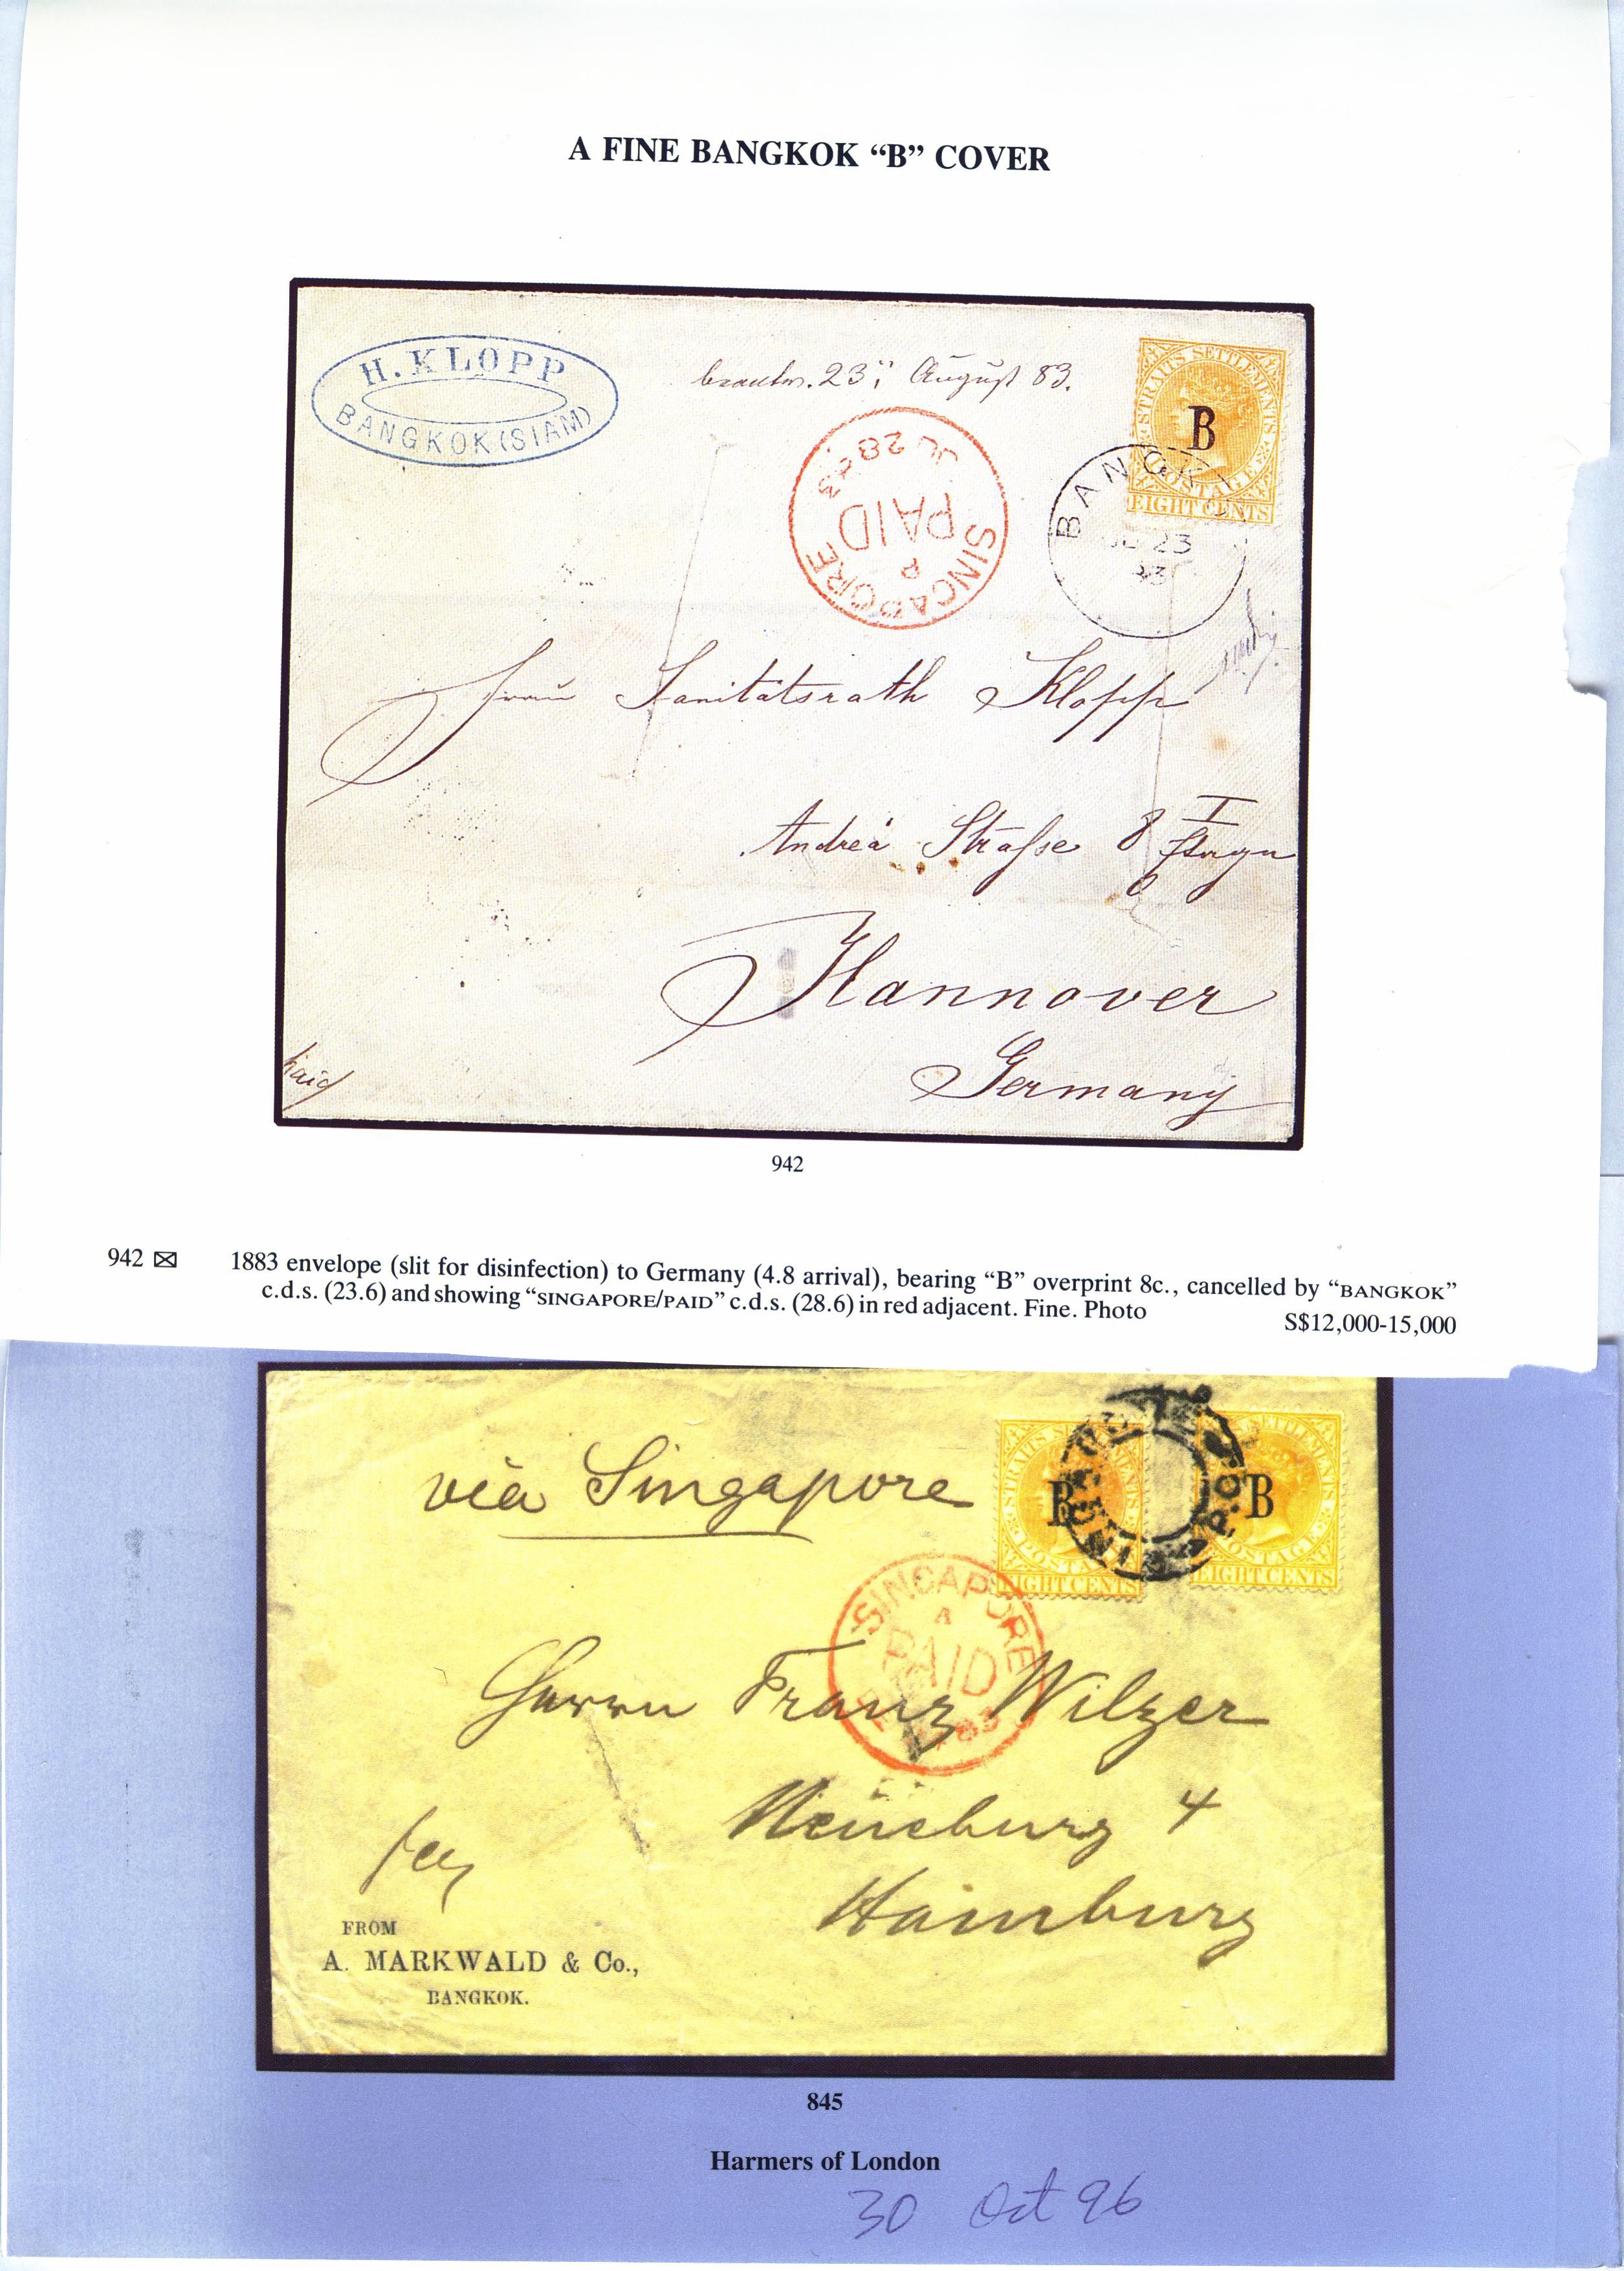 A FINE BANGKOK “B” COVER
H. KLOPP
BANGKOK (SIAM)
23; August 83.
STRAITS SETTLEMENTS
B
POSTAGE
EIGHT CENTS
SINGAPORE
PAID
JU 28 83
BANGKOK
JU 23
83
Frau Sanitätsrath Klopp
Andreä Straſse 8 I
Hannover
Germany
paid
942
942 1883 envelope (slit for disinfection) to Germany (4.8 arrival), bearing “B” overprint 8c., cancelled by “BANGKOK”
c.d.s. (23.6) and showing “SINGAPORE/PAID” c.d.s. (28.6) in red adjacent. Fine. Photo
S$12,000-15,000
via Singapore
STRAITS SETTLEMENTS
B
POSTAGE
EIGHT CENTS
SETTLEMENTS
B
POSTAGE
EIGHT CENTS
SINGAPORE
A
PAID
83
Herrn Franz Wilzer
Neueburg 4
Hamburg
FROM
A. MARKWALD & Co.,
BANGKOK.
845
Harmers of London
30 Oct 96